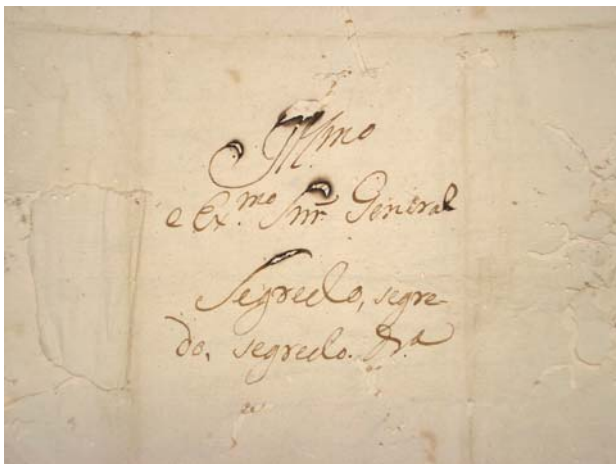 Illmo
e Ex.mo Snr. General
Segredo, segre-
do, segredo. &a